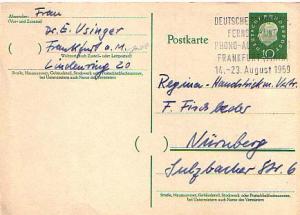 Absender:
Frau
Dr. E. Usinger
Frankfurt a. M.
Wohnort, auch Zustell- oder Leitpostamt
Lindenring 20
Straße, Hausnummer, Gebäudeteil, Stockwerk oder Postschließfachnummer,
bei Untermietern auch Name des Vermieters
Postkarte
DEUTSCHE
FERNS
PHONO-AU
FRANKFURT
14.-23. August 1959
10
Regina-
F. Fischbeder
Nürnberg
Sulzbacher Str. 6
Straße, Hausnummer, Gebäudeteil, Stockwerk oder Postschließfachnummer,
bei Untermietern auch Name des Vermieters